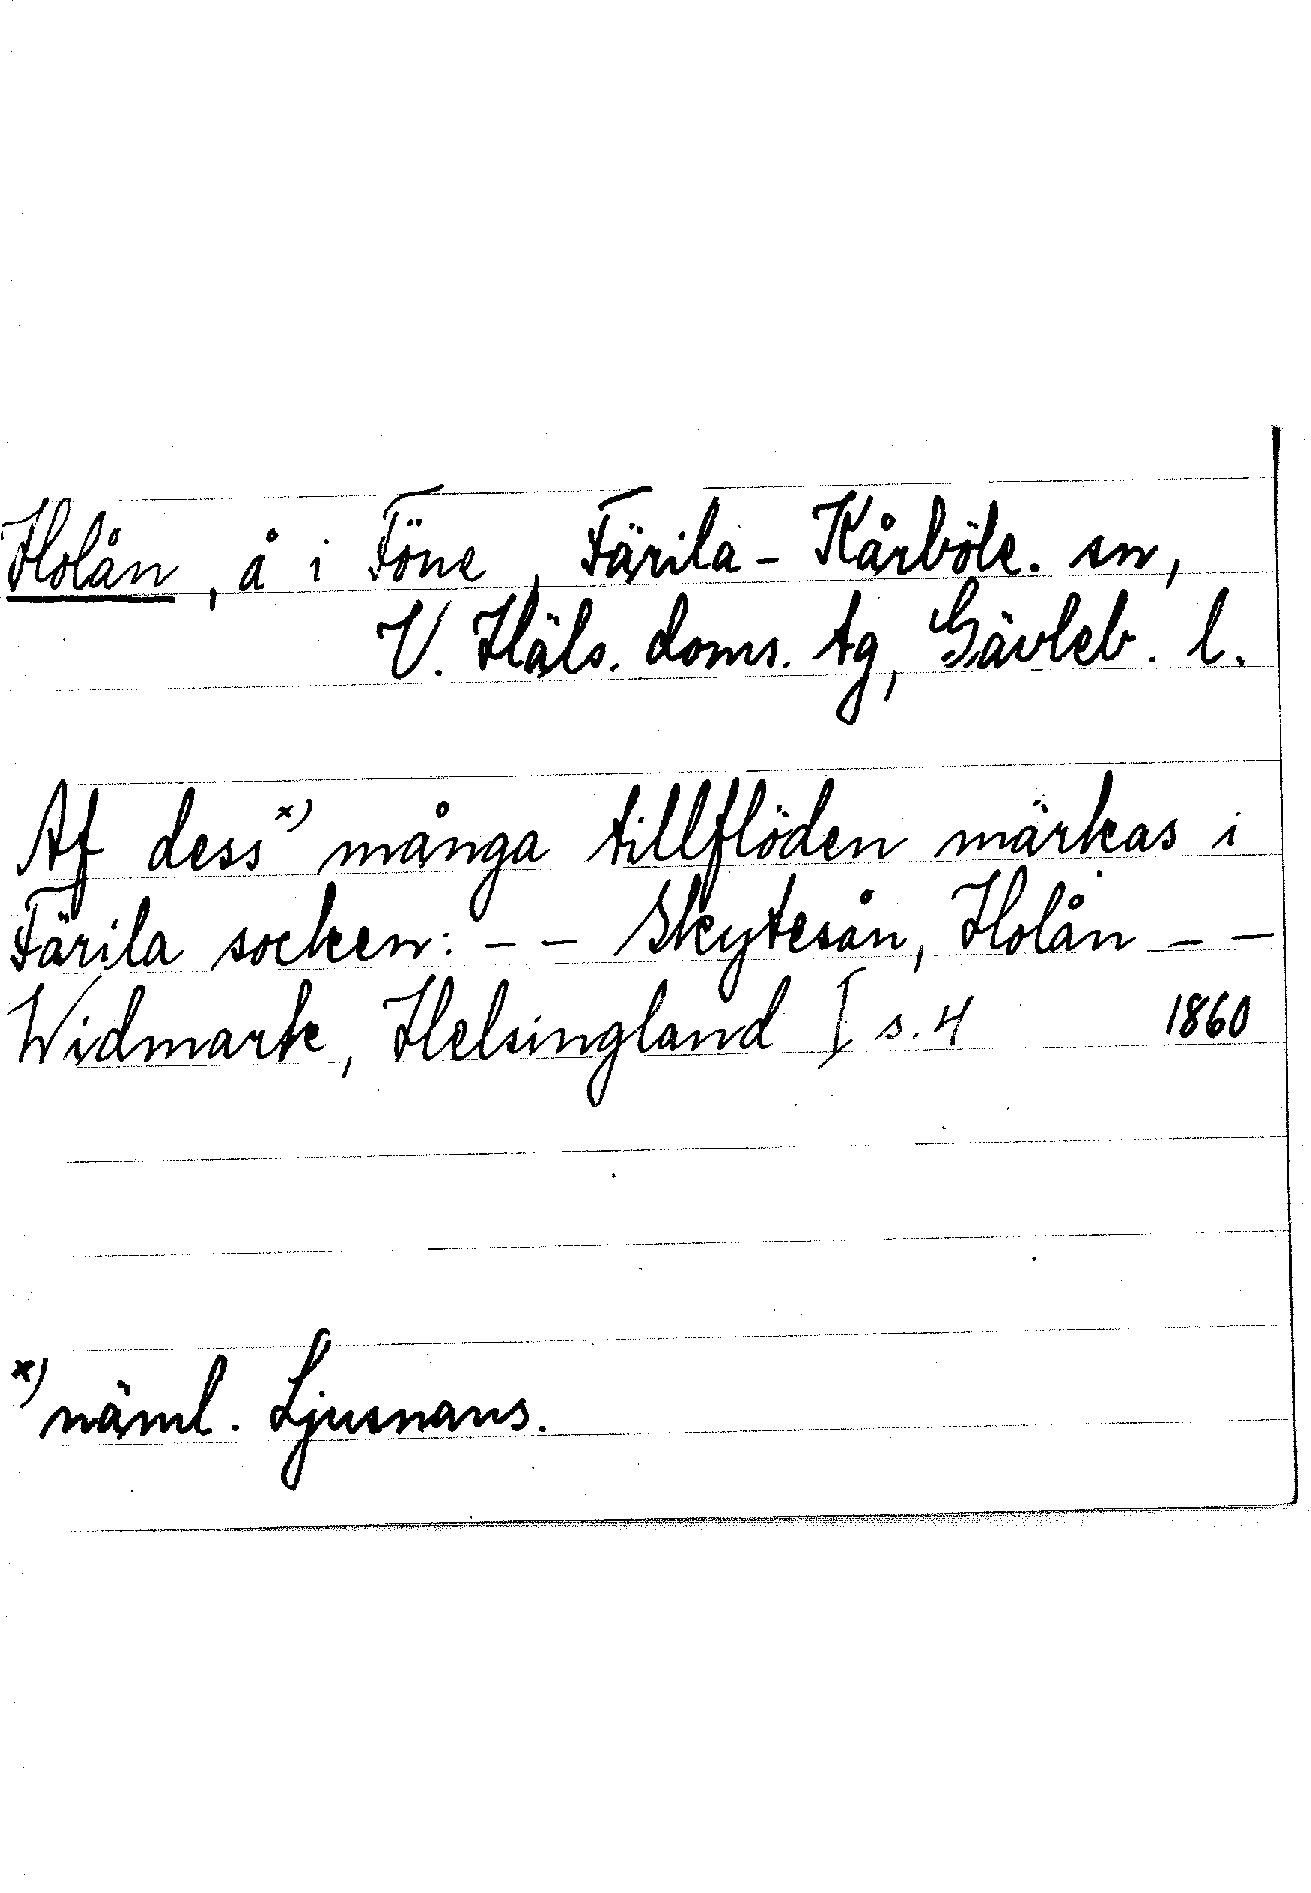 Holån, å i Föne, Färila-Kårböle. sn,
V. Häls. doms. tg, Gävleb. l.
Af dess x) många tillflöden märkas i
Färila socken: – – Skytesån, Holån – –
Widmark, Helsingland I s. 4 1860
x) näml. Ljusnans.